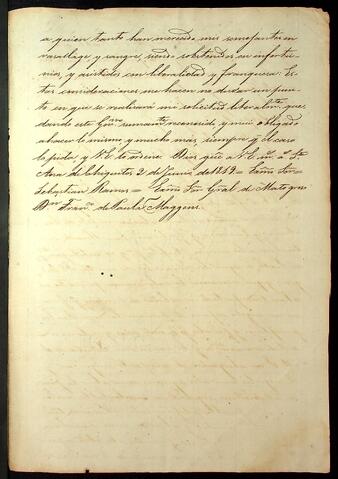 a quien tanto han merecido mis semejantes en
vasallage y sangre, siendo sostenidos en infortu-
nios, y asistidos con liberalidad y franqueza. Es-
tas consideraciones me hacen no dudar un pun-
to en que se realizará mi solicitud liberalmte. que
dando este Gno. sumamte. reconocido, y mui obligado
a hacer lo mismo y mucho mas siempre q. el caso
lo pida y V.E. lo ordene. Dios gue. a V.E. m. a. Sta.
Ana de Chiquitos 2 de Junio de 1819 = Exmo Sor =
Sebastian Ramos = Exmo Sor Gral de Matogroso
Dn. Franco. de Paula Maggesi.